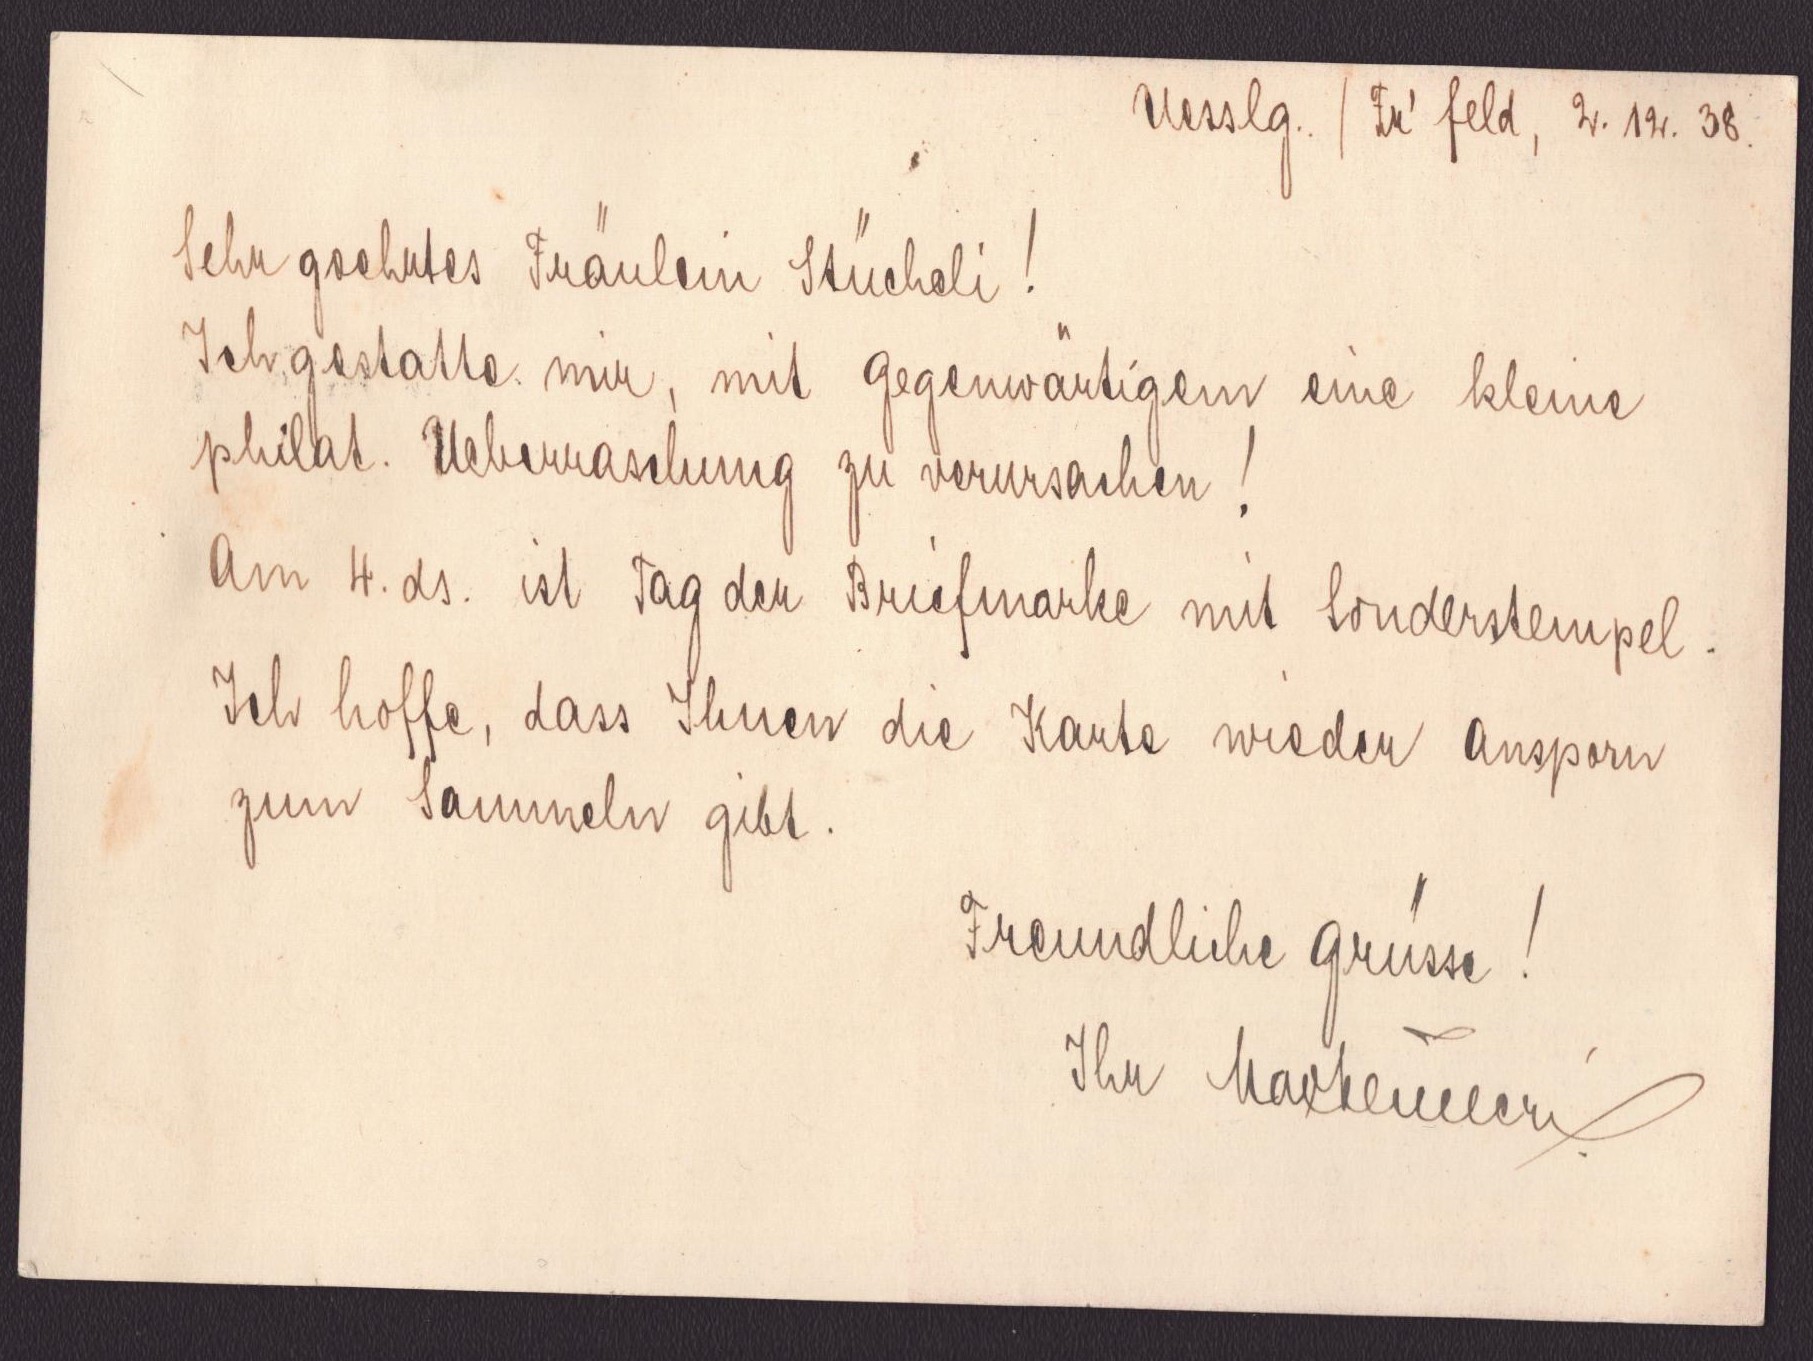 Uesslg. / Fr' feld, 2. 12. 38.
Sehr geehrtes Fräulein Stücheli!
Ich gestatte mir, mit Gegenwärtigem eine kleine
philat. Ueberraschung zu verursachen!
Am 4. ds. ist Tag der Briefmarke mit Sonderstempel.
Ich hoffe, dass Ihnen die Karte wieder Ansporn
zum Sammeln gibt.
Freundliche Grüsse!
Ihr